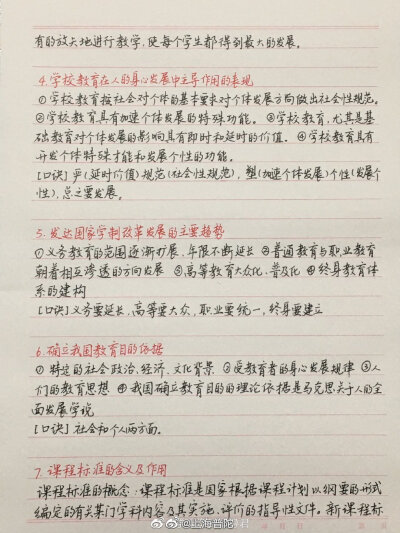 有的放矢地进行教学,使每个学生都得到最大的发展。
4.学校教育在人的身心发展中主导作用的表现
①学校教育按社会对个体的基本要求对个体发展方向做出社会性规范。
②学校教育具有加速个体发展的特殊功能。③学校教育,尤其是基
础教育对个体发展的影响具有即时和延时的价值。④学校教育具有
开发个体特殊才能和发展个性的功能。
[口诀]严(延时价值)规范(社会性规范),塑(加速个体发展)个性(发展个
性),总之要发展。
5.发达国家学制改革发展的主要趋势
①义务教育的范围逐渐扩展,年限不断延长 ②普通教育与职业教育
朝着相互渗透的方向发展 ③高等教育大众化、普及化 ④终身教育体
系的建构
[口诀]义务要延长,高等要大众,职业要统一,终身要建立
6.确立我国教育目的依据
①特定的社会政治、经济、文化背景 ②受教育者的身心发展规律 ③人
们的教育思想 ④我国确立教育目的的理论依据是马克思关于人的全
面发展学说
[口诀]社会和个人两方面。
7.课程标准的含义及作用
课程标准的概念:课程标准是国家根据课程计划以纲要的形式
编定的有关某门学科内容及其实施、评价的指导性文件。新课程标